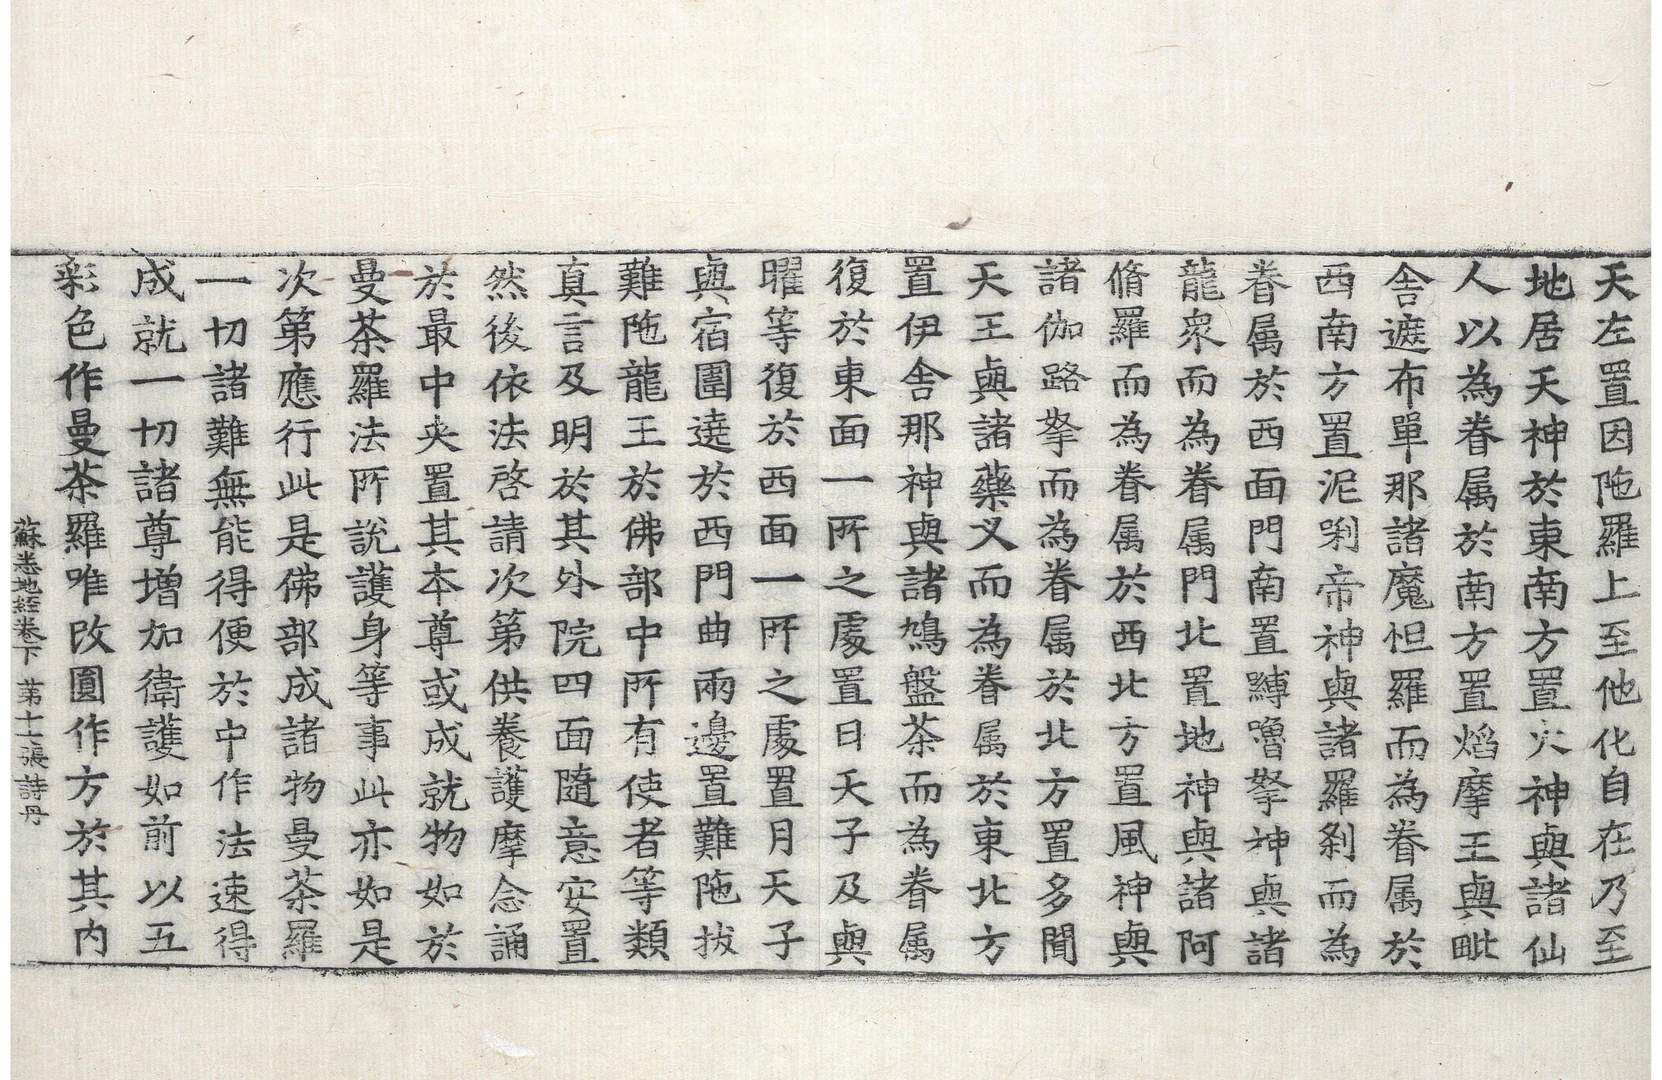 天左置因陁羅上至他化自在乃至至
地居天神於東南方置火神與諸仙
人以為眷属於南方置焰摩王與毗
舎遮布單那諸魔怛羅而為眷属於
西南方置泥唎帝神與諸羅刹而為
眷属於西面門南置嚩嚕拏神與諸
龍衆而為眷属門北置地神與諸阿
脩羅而為眷属於西北方置風神與
諸伽路拏而為眷属於北方置多聞
天王與諸藥叉而為眷属於東北方
置伊舎那神與諸鳩盤荼而為眷属
復於東面一所之處置日天子及與
曜等復於西面一所之處置月天子
與宿圍遶於西門曲兩邊置難陁拔
難陁龍王於佛部中所有使者等類
真言及明於其外院四面隨意安置
然後依法啓請次第供養護摩念誦
於最中央置其本尊或成就物如於
曼荼羅法所說護身等事此亦如是
次第應行此是佛部成諸物曼荼羅
一切諸難無能得便於中作法速得
成就一切諸尊增加衛護如前以五
彩色作曼荼羅唯改圓作方於其内
蘇悉地経卷下 第十七張 詩丹